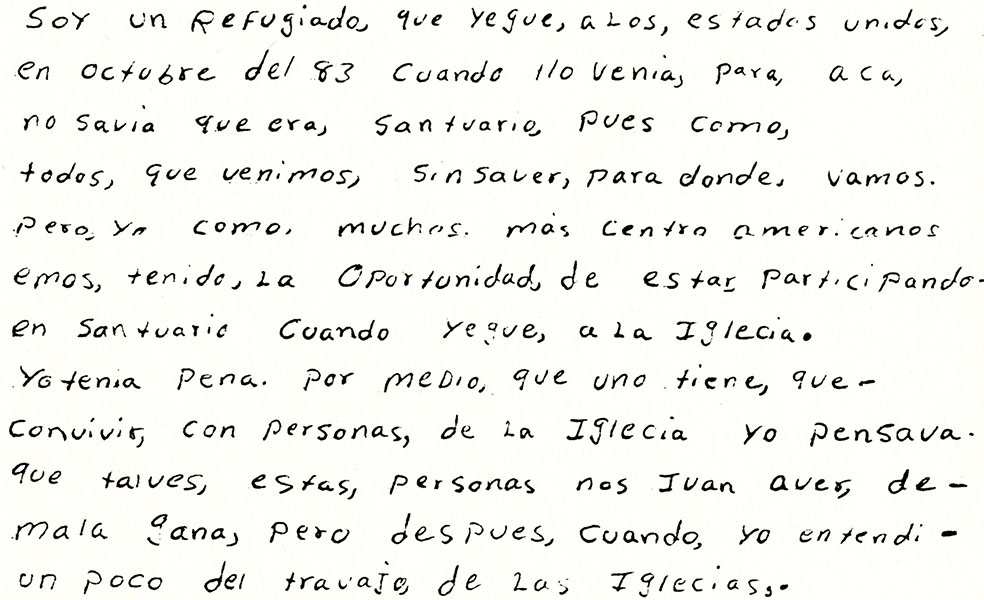 Soy un Refugiado, que yegue, a Los, estados unidos,
en octubre del 83 Cuando llo venia, para, aca,
no savia que era, santuario, pues como,
todos, que venimos, sin saver, para donde, vamos.
pero, yo como. muchos. más centro americanos
emos, tenido, La Oportunidad, de estar participando-
en santuario Cuando yegue, a La Iglecia.
Yo tenia pena. por medio, que uno tiene, que-
convivir, con personas, de La Iglecia yo pensava.
que talves, estas, personas nos Ivan aver, de-
mala gana, pero despues, cuando, yo entendi-
un poco del travajo, de Las Iglecias,.